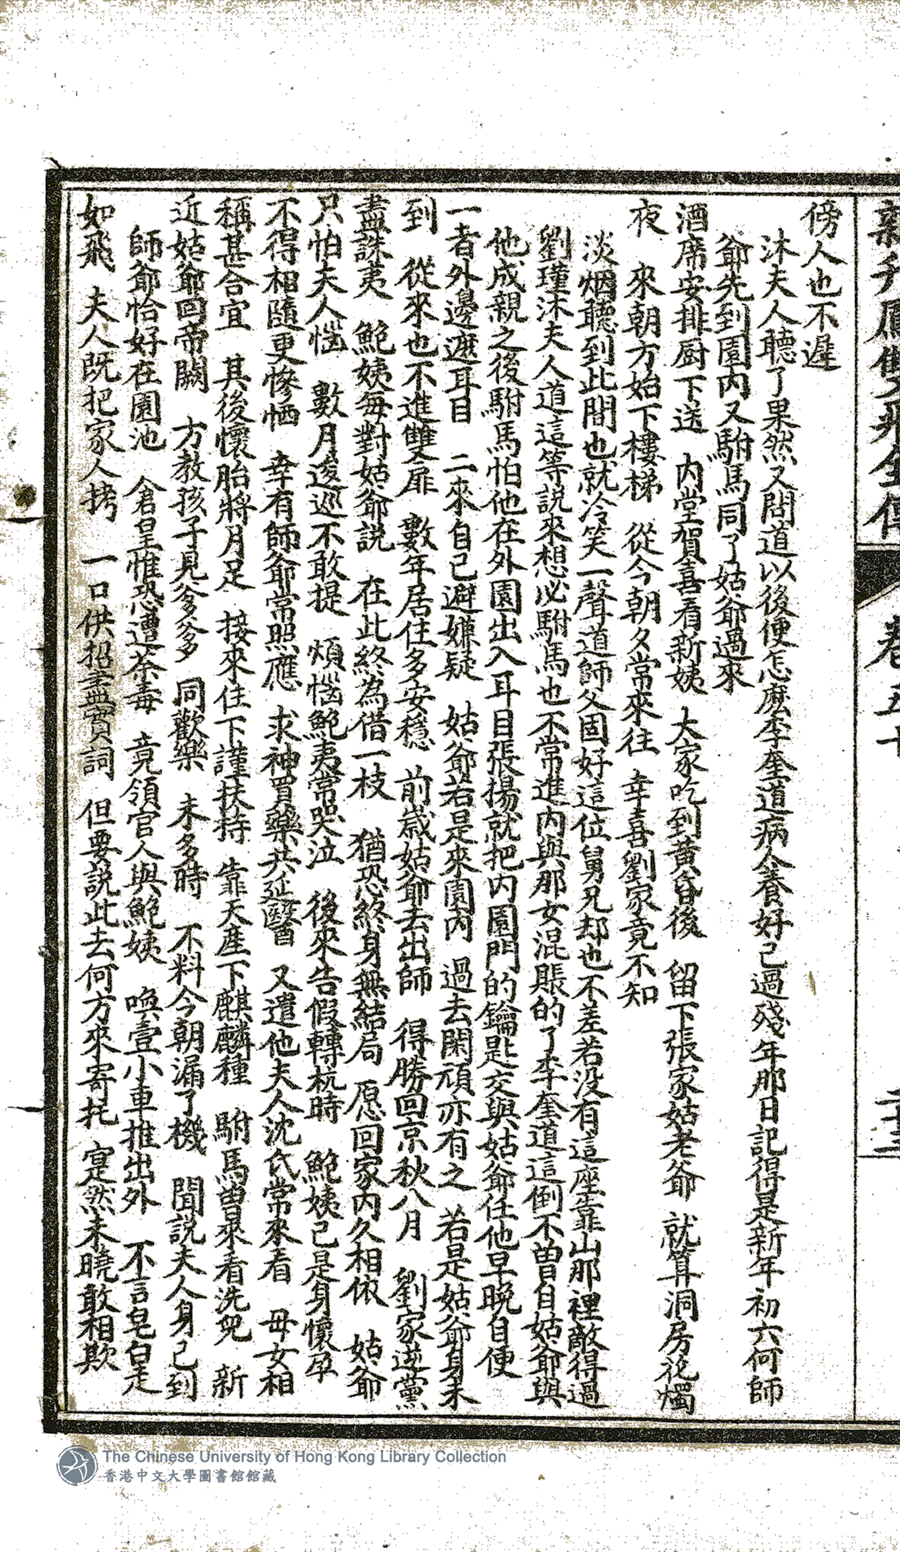 傍人也不遲
沐夫人聽了果然又問道以後便怎麽李奎道病人養好已過殘年那日記得是新年初六何師
爺先到園內又駙馬同了姑爺過來
酒席安排厨下送 內堂賀喜看新姨 大家吃到黃昏後 留下張家姑老爺 就算洞房花燭
夜 來朝方始下樓梯 從今朝夕常來往 幸喜劉家竟不知
淡烟聽到此間也就冷笑一聲道師父固好這位舅兄却也不差若没有這座靠山那裡敵得過
劉瑾沐夫人道這等說來想必駙馬也不常進內與那女混賬的了李奎道這倒不曾自姑爺與
他成親之後駙馬怕他在外園出入耳目張揚就把内園門的鑰匙交與姑爺任他早晚自便
一者外邊遮耳目 二來自己避嫌疑 姑爺若是來園內 過去閑頑亦有之 若是姑爺身未
到 從來也不進雙扉 數年居住多安穩 前歲姑爺去出師 得勝回京秋八月 劉家逆黨
盡誅夷 鮑姨每對姑爺說 在此終為借一枝 猶恐終身無結局 愿回家內久相依 姑爺
只怕夫人惱 數月逡巡不敢提 煩惱鮑夷常哭泣 後來告假轉杭時 鮑姨已是身懷孕
不得相隨更慘恓 幸有師爺常照應 求神買藥共延醫 又遣他夫人沈氏常來看 毋女相
稱甚合宜 其後懷胎將月足 接來住下謹扶持 靠天產下麒麟種 駙馬曾來看洗兒 新
近姑爺回帝闕 方教孩子見爹爹 同歡樂 未多時 不料今朝漏了機 聞說夫人身已到
師爺恰好在園池 倉皇惟恐遭荼毒 竟領官人與鮑姨 喚壹小車推出外 不言皂白走
如飛 夫人既把家人拷 一口供招盡實詞 但要說此去何方來寄托 寔然未曉敢相欺
新刋鳳雙飛全傳
卷五十
二十三
The Chinese University of Hong Kong Library Collection
香港中文大學圖書館館藏